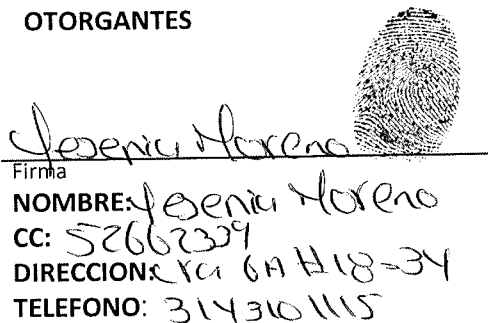 OTORGANTES
Yesenia Moreno
Firma
NOMBRE: Yesenia Moreno
CC: 52662339
DIRECCION: Cra 6A #18-34
TELEFONO: 3143101115